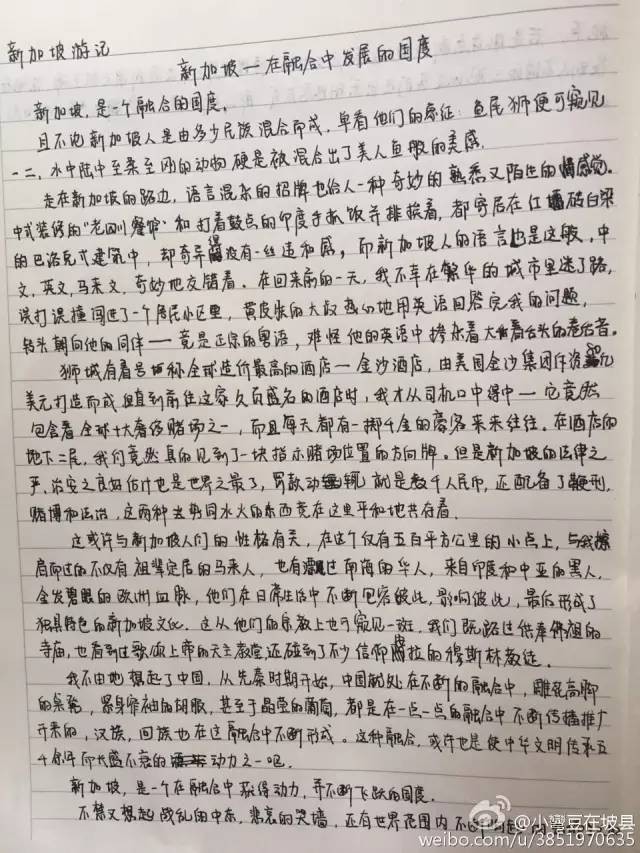 新加坡游记
新加坡—在融合中发展的国度
新加坡,是一个融合的国度。
且不论新加坡人是由多少民族混合而成,单看他们的象征:鱼尾狮便可窥见
一二,水中陆中至柔至刚的动物硬是被混合出了美人鱼般的灵感。
走在新加坡的路边,语言混杂的招牌也给人一种奇妙的熟悉又陌生的情感觉。
中式装修的“老四川餐馆”和打着鼓点的印度手抓饭并排挨着,都寄居在红墙砖白梁
的巴洛克式建筑中,却奇异得没有一丝违和感,而新加坡人的语言也是这般,中
文,英文,马来文,奇妙地交错着。在回来前的一天,我不幸在繁华的城市里迷了路,
误打误撞闯进了一个居民小区里,黄皮肤的大叔热心地用英语回答完我的问题,
转头朝向他的同伴——竟是正宗的粤语,难怪他的英语中掺杂着
狮城有着号称全球造价最高的酒店—金沙酒店,由美国金沙集团斥资50亿
美元打造而成,但直到前往这家久负盛名的酒店时,我才从司机口中得中—它竟然
包含着全球十大奢侈赌场之一,而且每天都有一掷千金的豪客来来往往。在酒店的
地下二层,我们竟然真的见到了一块指示赌场位置的方向牌。但是新加坡的法律之
严,治安之良好估计也是世界之最了,罚款动辄就是数千人民币,还配备了鞭刑,
赌博和法治,这两种去势同水火的东西竟在这里平和地共存着。
这或许与新加坡人们的性格有关,在这个仅有五百平方公里的小点上,与我擦
肩而过的不仅有祖辈定居的马来人,也有漂过南海的华人,来自印度和中亚的黑人,
金发碧眼的欧洲血脉,他们在日常生活中不断包容彼此,影响彼此,最后形成了
独具特色的新加坡文化。这从他们的宗教上也可窥见一斑,我们既路过供奉佛祖的
寺庙,也看到过歌颂上帝的天主教堂,还碰到了不少信仰安拉的穆斯林教徒。
我不由地想起了中国,从先秦时期开始,中国就处在不断的融合中,雕花高脚
的桌凳,紧身窄袖的胡服,甚至于晶莹的葡萄,都是在一点一点的融合中不断传播推广
开来的,汉族,回族也在这融合中不断形成。这种融合,或许也是使中华文明传承五
千余年而长盛不衰的动力之一吧。
新加坡,是一个在融合中获得动力,并不断飞跃的国度。
不禁又想起战乱的中东,悲哀的哭墙,还有世界范围内不断
@小灣豆在坡县
weibo.com/u/3851970635